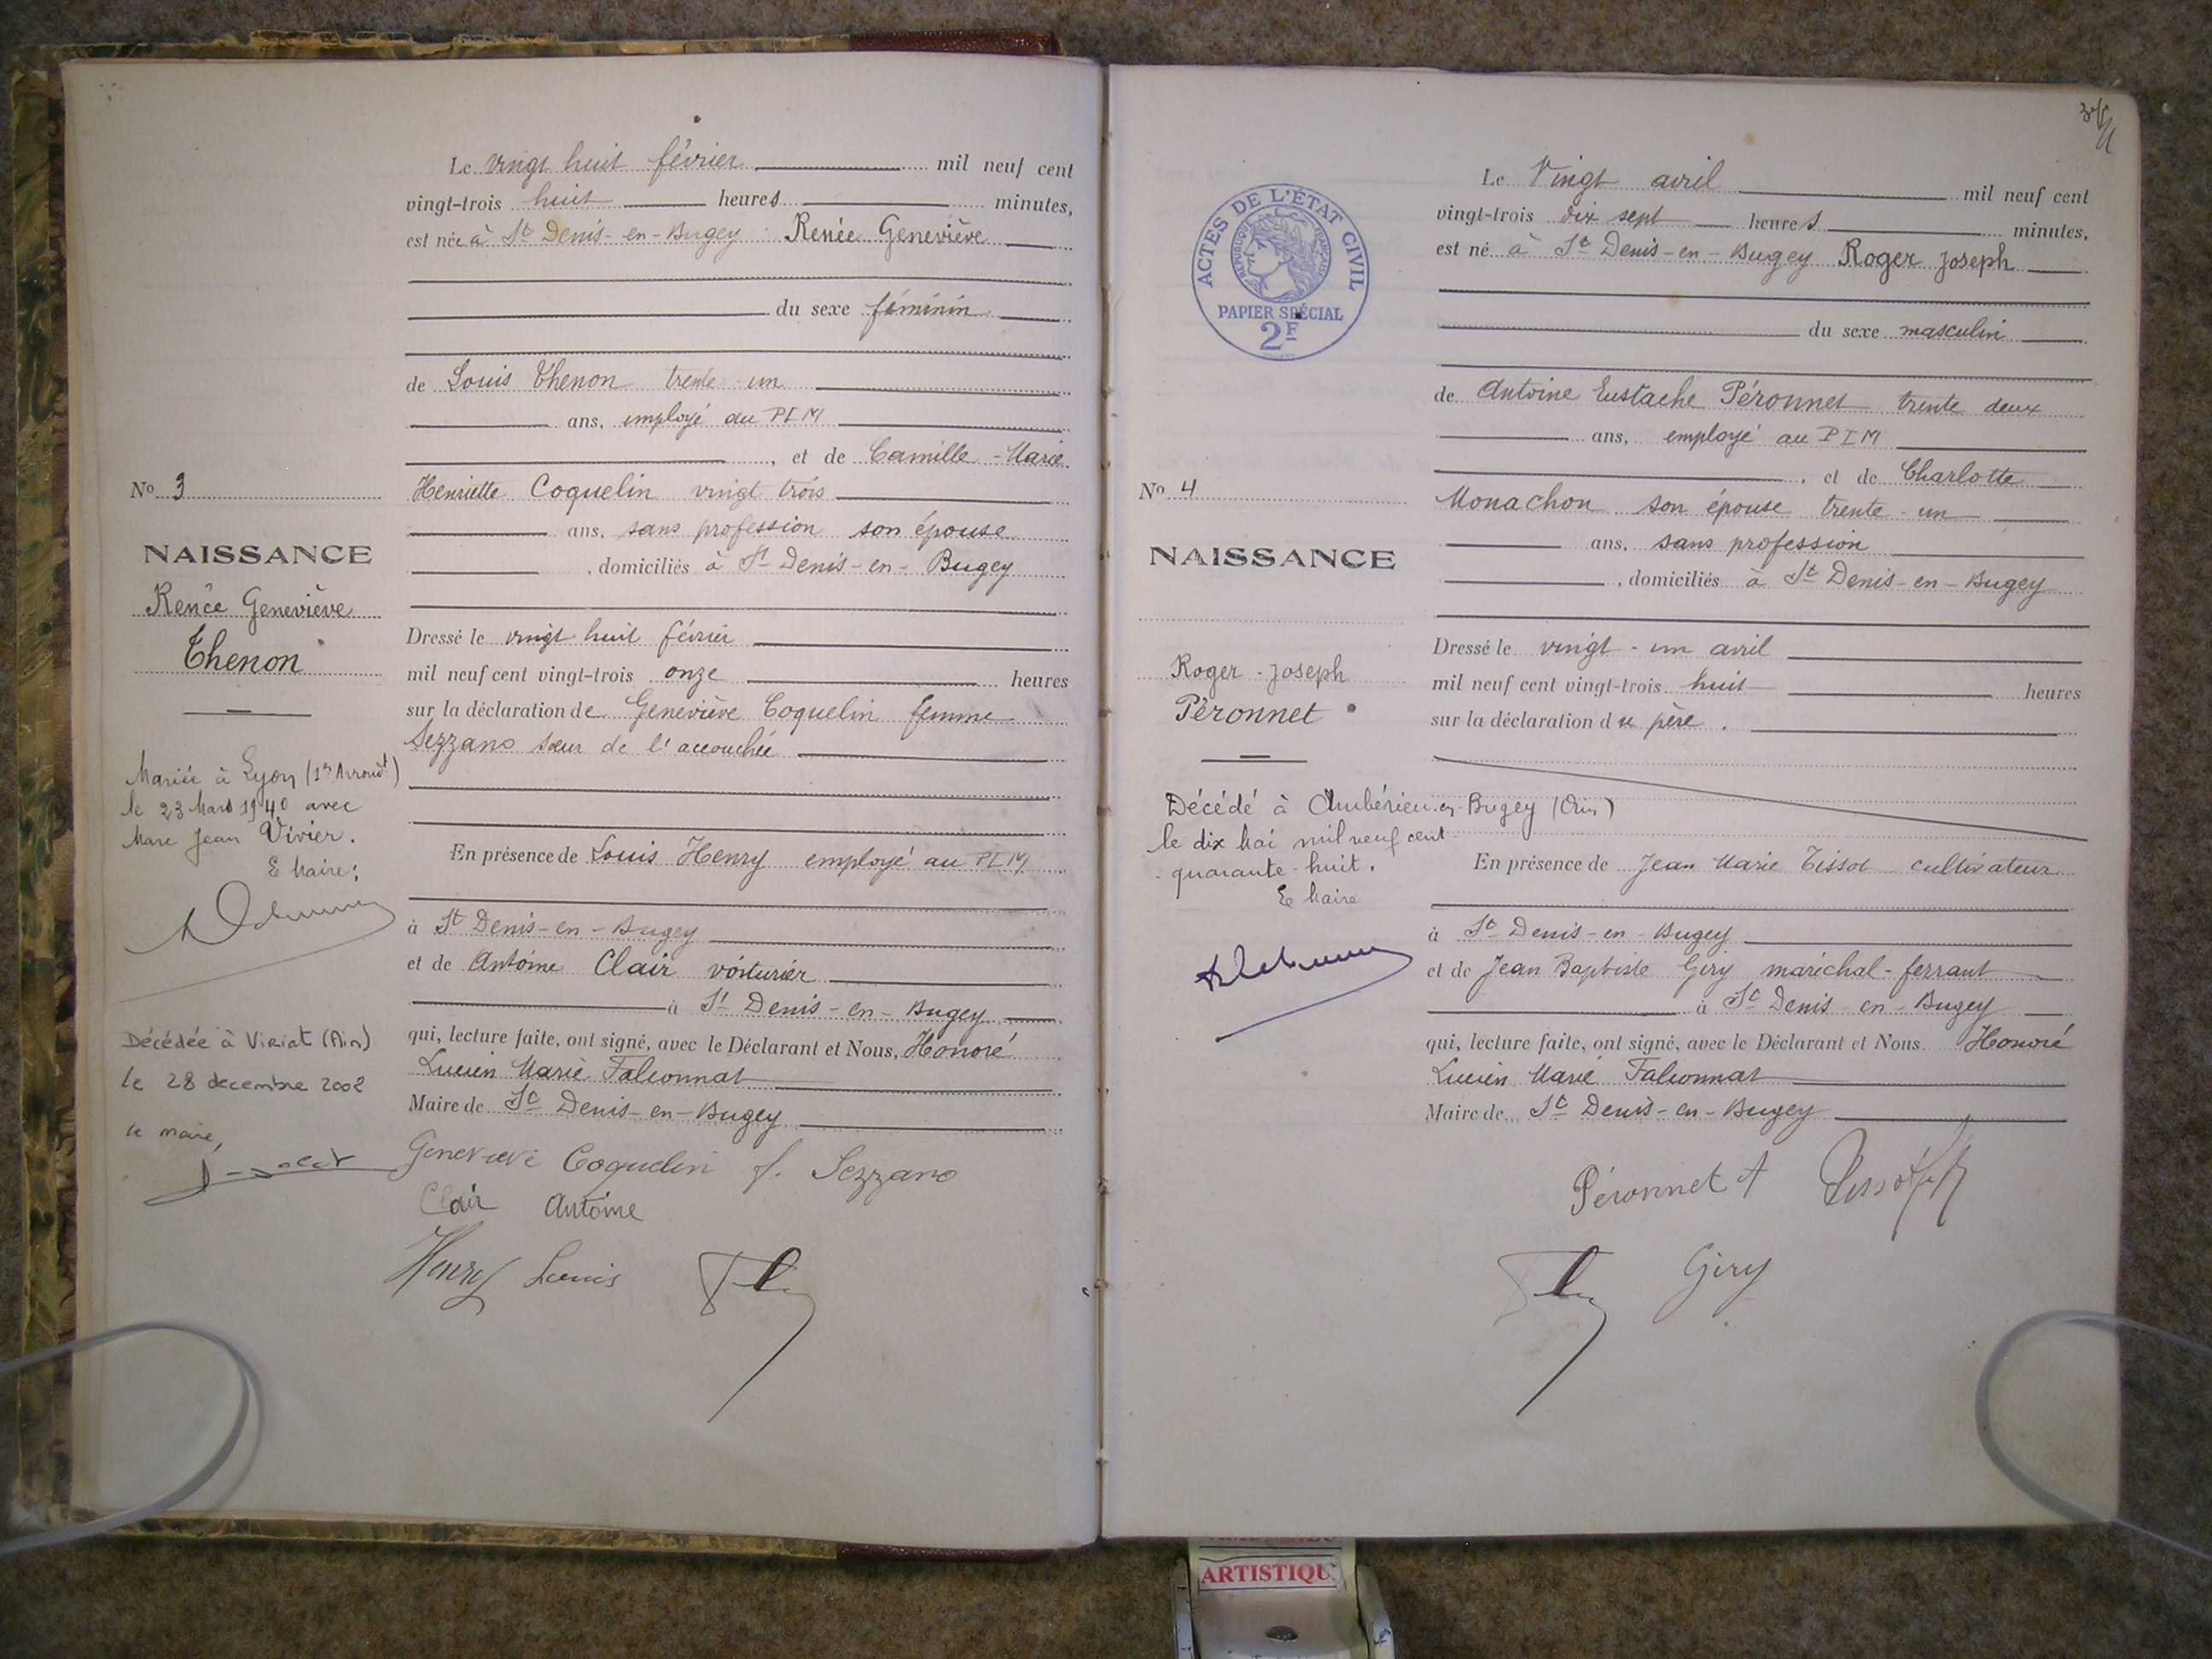 Le vingt huit février mil neuf cent
vingt-trois huit heures minutes,
est née à St Denis-en-Bugey Renée Geneviève
du sexe féminin
de Louis Thenon trente-un
ans, employé au PLM
, et de Camille-Marie
Henriette Coquelin vingt trois
ans, sans profession son épouse
, domiciliés à St Denis-en-Bugey
Dressé le vingt huit février
mil neuf cent vingt-trois onze heures
sur la déclaration de Geneviève Coquelin femme
Sezzano sœur de l'accouchée
En présence de Louis Henry employé au PLM
à St Denis-en-Bugey
et de Antoine Clair voiturier
à St Denis-en-Bugey
qui, lecture faite, ont signé, avec le Déclarant et Nous, Honoré
Lucien Marie Falconnat
Maire de St Denis-en-Bugey
Geneviève Coquelin f. Sezzano
Clair Antoine
Henry Louis
No 3
NAISSANCE
Renée Geneviève
Thenon
Mariée à Lyon (1er Arrondt)
le 23 Mars 1940 avec
Marc Jean Vivier.
Le Maire:
Décédée à Viriat (Ain)
le 28 decembre 2002
le maire,
ACTES DE L'ÉTAT CIVIL
RÉPUBLIQUE FRANÇAISE
PAPIER SPÉCIAL
2F
Le Vingt avril mil neuf cent
vingt-trois dix sept heures minutes,
est né à St Denis-en-Bugey Roger Joseph
du sexe masculin
de Antoine Eustache Péronnet trente deux
ans, employé au PLM
, et de Charlotte
Monachon son épouse trente-un
ans, sans profession
, domiciliés à St Denis-en-Bugey
Dressé le vingt-un avril
mil neuf cent vingt-trois huit heures
sur la déclaration du père.
En présence de Jean Marie Tissot cultivateur
à St Denis-en-Bugey
et de Jean Baptiste Giry maréchal-ferrant
à St Denis-en-Bugey
qui, lecture faite, ont signé, avec le Déclarant et Nous Honoré
Lucien Marie Falconnat
Maire de St Denis-en-Bugey
Péronnet A
Giry
No 4
NAISSANCE
Roger-Joseph
Péronnet
Décédé à Ambérieu-en-Bugey (Ain)
le dix Mai mil neuf cent
quarante-huit.
Le Maire
ARTISTIQU